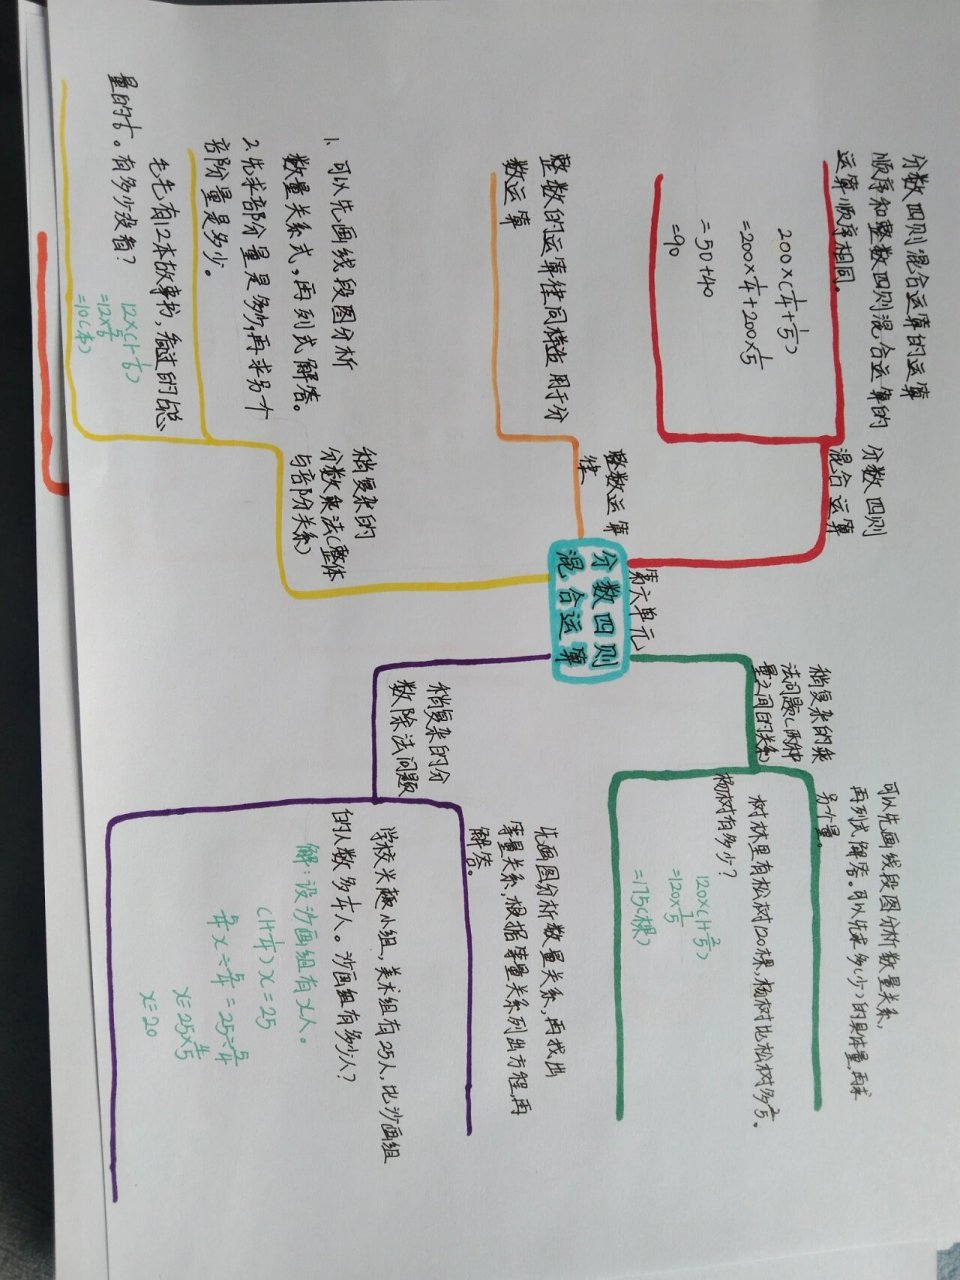 第六单元
分数四则
混合运算
分数四则
混合运算
分数四则混合运算的运算
顺序和整数四则混合运算的
运算顺序相同。
200×(1/4+1/5)
=200×1/4+200×1/5
=50+40
=90
整数运算
律
整数的运算律同样适用于分
数运算
稍复杂的
分数乘法(整体
与部分关系)
1、可以先画线段图分析
数量关系式,再列式解答。
2.先求部分量是多少,再求另个
部分量是多少。
毛毛有12本故事书,看过的是总
量的1/6。有多少没看?
12×(1-1/6)
=12×5/6
=10(本)
稍复杂的乘
法问题(两种
量之间的关系)
可以先画线段图分析数量关系,
再列式解答。可以先求多(少)的具体量,再求
另个量。
树林里有松树120棵,杨树比松树多2/5。
杨树有多少?
120×(1+2/5)
=120×7/5
=175(棵)
稍复杂的分
数除法问题
先画图分析数量关系,再找出
等量关系,根据等量关系列出方程,再
解答。
学校兴趣小组,美术组有25人,比沙画组
的人数多1/4人。沙画组有多少人?
解:设沙画组有x人。
(1+1/4)x=25
5/4x÷5/4=25÷5/4
x=25×4/5
x=20